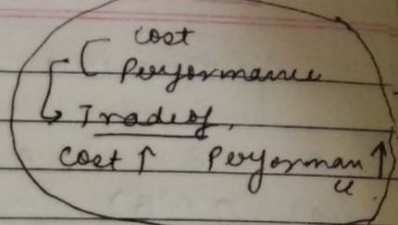 cost
Performance
Tradeof.
Cost ↑ Performan ↑
ce